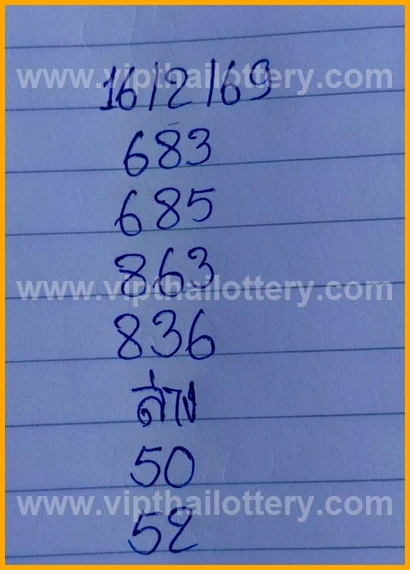 www.vipthailottery.com
16/2/69
683
685
863
www.vipthailottery.com
836
ล่าง
50
www.vipthailottery.com
52